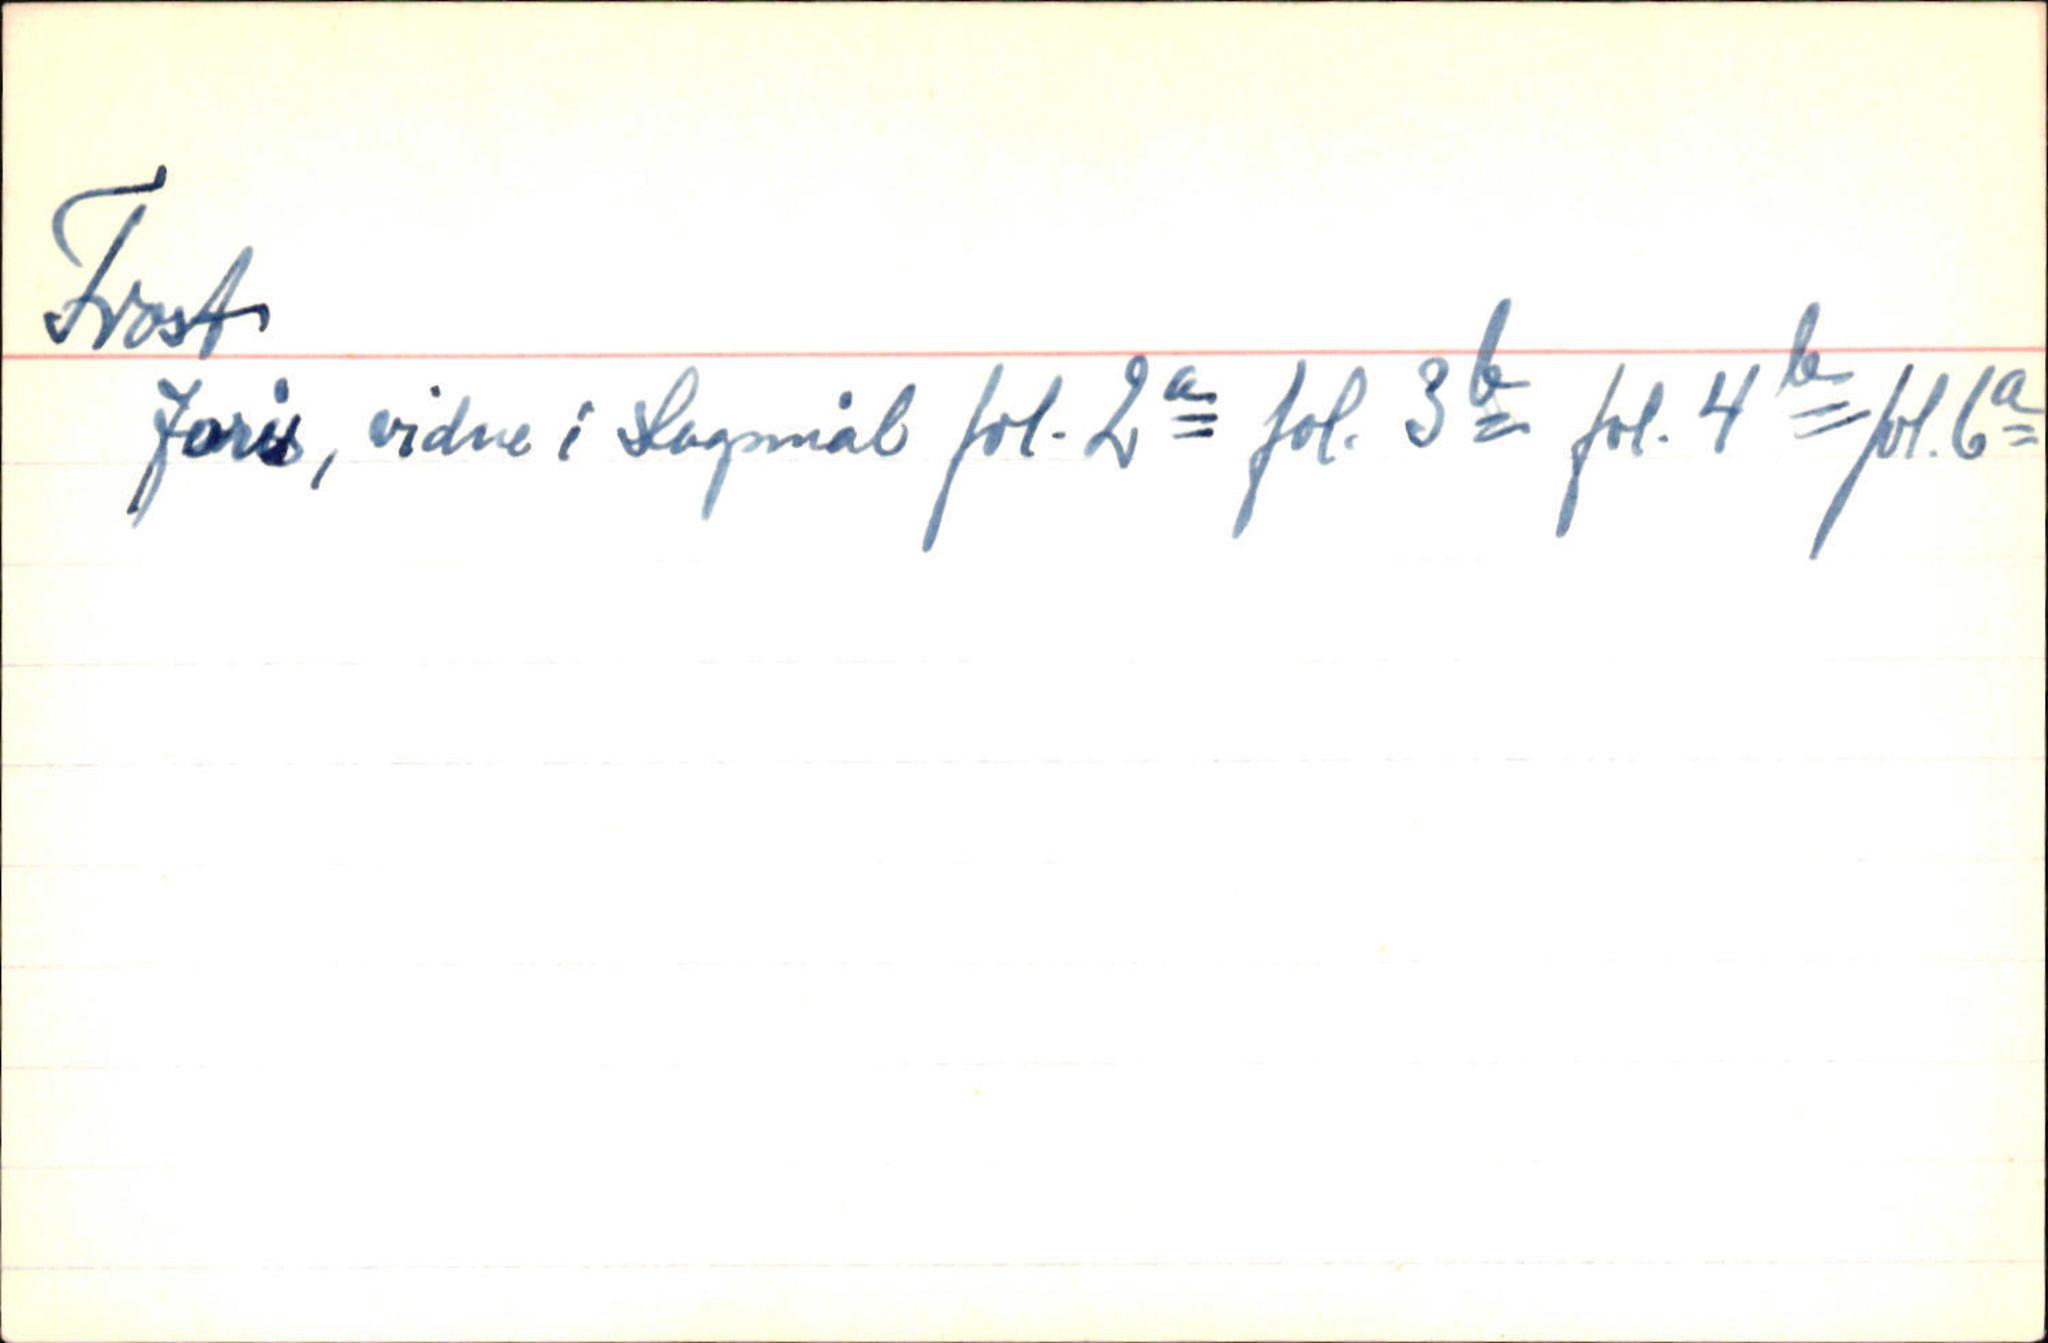 Frost
Joris, vidne i Sagsmål fol. 2a fol. 3b fol. 4b fol. 6a